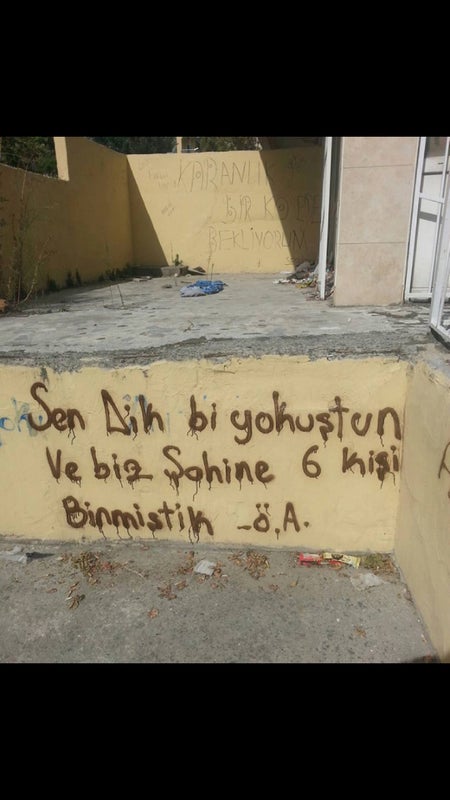 KARANLIK
BİR KÖŞEDE
BEKLİYORUM
Sen Dik bi yokuştun
Ve biz Şahine 6 kişi
Binmiştik -Ö.A.